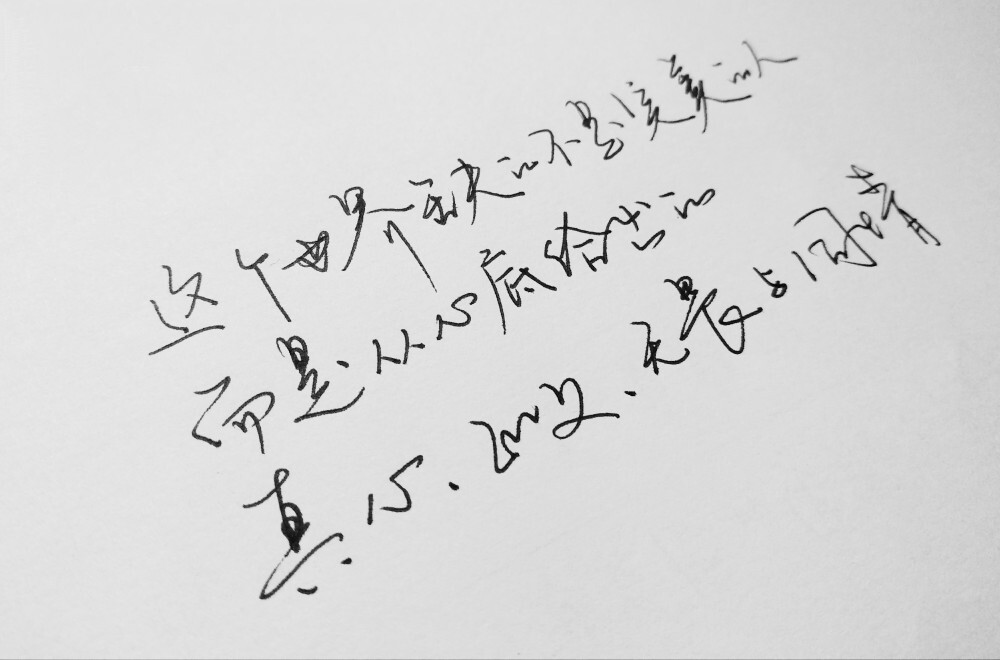 这个世界缺的不是完美的人
而是从心底给出的
真心.正义.无畏与同情